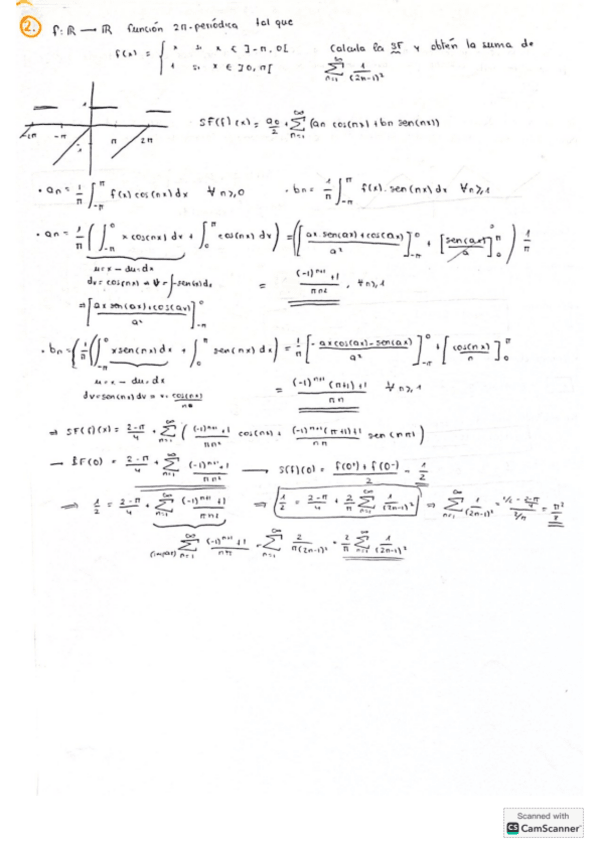 2. f: ℝ → ℝ función 2π-periódica tal que
f(x) = { x si x ∈ ]-π, 0[
1 si x ∈ ]0, π[
Calcula la SF y obtén la suma de
∑_{n=1}^{∞} 1/(2n-1)²
-2π -π π 2π
SF(f)(x) = a₀/2 + ∑_{n=1}^{∞} (an cos(nx) + bn sen(nx))
• an = 1/π ∫_{-π}^{π} f(x) cos(nx) dx ∀ n ≥ 0 • bn = 1/π ∫_{-π}^{π} f(x) · sen(nx) dx ∀ n ≥ 1
• an = 1/π ( ∫_{-π}^{0} x cos(nx) dx + ∫_{0}^{π} cos(nx) dx ) = ( [ (ax · sen(ax) + cos(ax)) / a² ]_{-π}^{0} + [ sen(ax) / a ]_{0}^{π} ) 1/π
u = x → du = dx
= ((-1)^{n+1} + 1) / (πn²), ∀ n ≥ 1
= [ (ax sen(ax) + cos(ax)) / a² ]_{-π}^{0}
• bn = ( 1/π ( ∫_{-π}^{0} x sen(nx) dx + ∫_{0}^{π} sen(nx) dx ) = 1/π [ - (ax cos(ax) - sen(ax)) / a² ]_{-π}^{0} + [ cos(nx) / n ]_{0}^{π}
u = x → du = dx
= ((-1)^{n+1} (π+1) + 1) / (πn) ∀ n ≥ 1
⇒ SF(f)(x) = (2-π)/4 + ∑_{n=1}^{∞} ( ((-1)^{n+1} + 1)/(πn²) cos(nx) + ((-1)^{n+1} (π+1) + 1)/(πn) sen(nx) )
→ SF(0) = (2-π)/4 + ∑_{n=1}^{∞} ((-1)^{n+1} + 1)/(πn²) → S(f)(0) = (f(0⁺) + f(0⁻))/2 = 1/2
⇒ 1/2 = (2-π)/4 + ∑_{n=1}^{∞} ((-1)^{n+1} + 1)/(πn²) ⇒ 1/2 = (2-π)/4 + 2/π ∑_{n=1}^{∞} 1/(2n-1)² ⇒ ∑_{n=1}^{∞} 1/(2n-1)² = (1/2 - (2-π)/4)/(2/π) = π²/8
(impar) ∑_{n=1}^{∞} ((-1)^{n+1} + 1)/(πn²) = ∑_{n=1}^{∞} 2/(π(2n-1)²) = 2/π ∑_{n=1}^{∞} 1/(2n-1)²
Scanned with
CS CamScanner